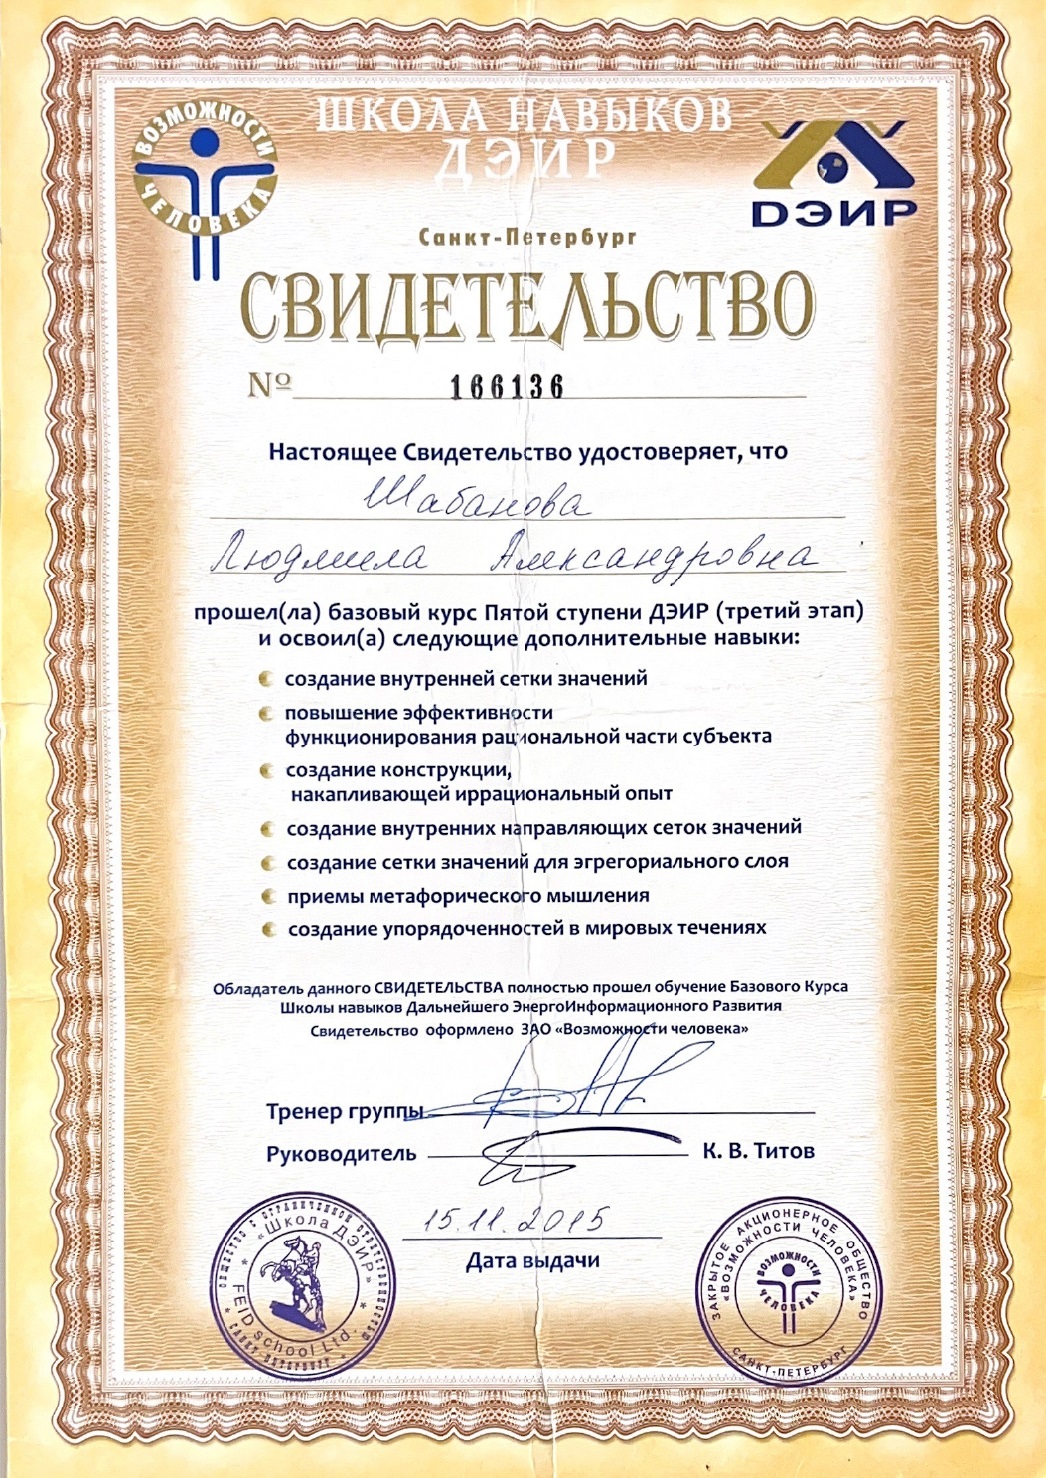 ВОЗМОЖНОСТИ
ЧЕЛОВЕКА
ШКОЛА НАВЫКОВ
ДЭИР
DЭИР
Санкт-Петербург
СВИДЕТЕЛЬСТВО
№ 166136
Настоящее Свидетельство удостоверяет, что
Шабанова
Людмила Александровна
прошел(ла) базовый курс Пятой ступени ДЭИР (третий этап)
и освоил(а) следующие дополнительные навыки:
создание внутренней сетки значений
повышение эффективности
функционирования рациональной части субъекта
создание конструкции,
накапливающей иррациональный опыт
создание внутренних направляющих сеток значений
создание сетки значений для эгрегориального слоя
приемы метафорического мышления
создание упорядоченностей в мировых течениях
Обладатель данного СВИДЕТЕЛЬСТВА полностью прошел обучение Базового Курса
Школы навыков Дальнейшего ЭнергоИнформационного Развития
Свидетельство оформлено ЗАО «Возможности человека»
Тренер группы
Руководитель К. В. Титов
15.11.2015
Дата выдачи
ОБЩЕСТВО С ОГРАНИЧЕННОЙ ОТВЕТСТВЕННОСТЬЮ
«Школа ДЭИР»
FEID school Ltd.
САНКТ-ПЕТЕРБУРГ
ЗАКРЫТОЕ АКЦИОНЕРНОЕ ОБЩЕСТВО
«ВОЗМОЖНОСТИ ЧЕЛОВЕКА»
ВОЗМОЖНОСТИ
ЧЕЛОВЕКА
САНКТ-ПЕТЕРБУРГ